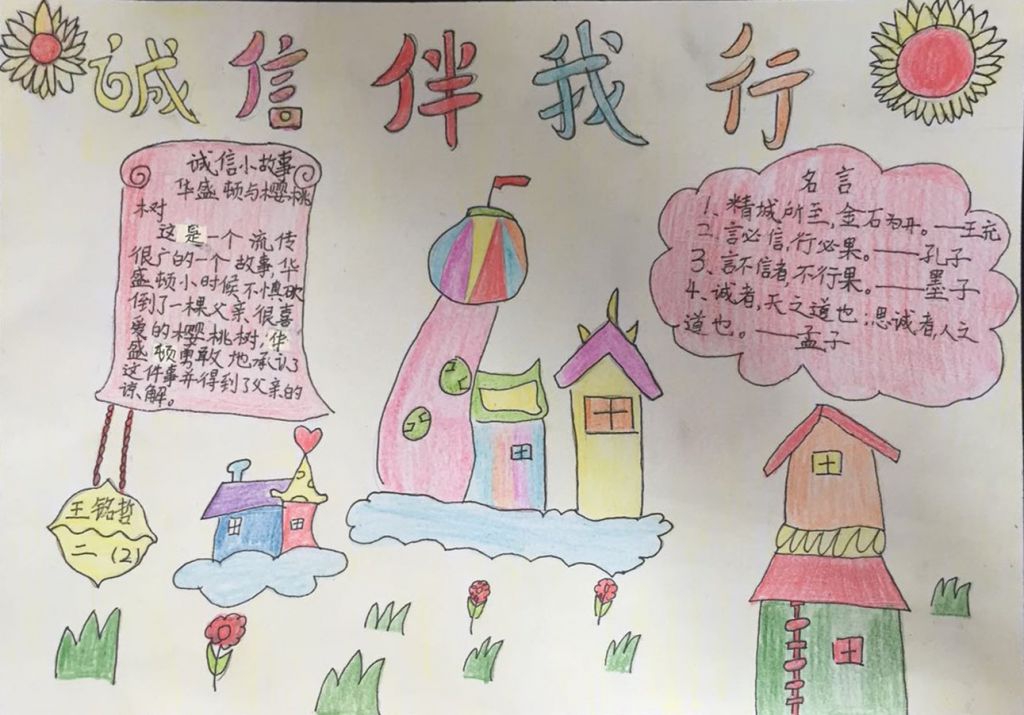 诚信伴我行
诚信小故事
华盛顿与樱桃
树
这是一个流传
很广的一个故事,华
盛顿小时候不慎砍
倒了一棵父亲很喜
爱的樱桃树,华
盛顿勇敢地承认了
这件事并得到了父亲的
谅解。
名言
1、精城所至,金石为开。——王充
2、言必信,行必果。——孔子
3、言不信者,不行果。——墨子
4、诚者,天之道也;思诚者,人之
道也。——孟子
王铭哲
二(2)